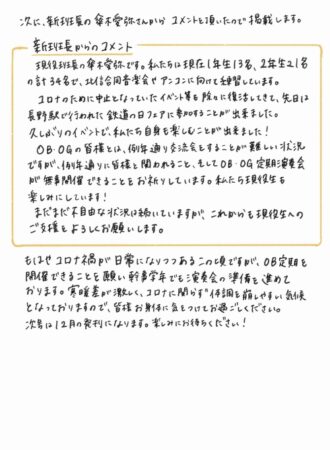 次に、新班長の傘木愛弥さんから コメントを頂いたので掲載します。
新班長からのコメント
現役班長の傘木愛弥です。私たちは現在1年生13名、2年生21名
の計34名で、北信合同音楽会や アンコンに向けて練習しています。
コロナのために中止となっていたイベント等も徐々に復活してきて、先日は
長野駅で行われた 鉄道の日フェアに参加することが出来ました。
久しがりのイベントで、私たち自身も楽しむことが出来ました！
OB・OGの皆様とは、例年通り交流会をすることが難しい状況
ですが、例年通りに皆様と関われること、そしてOB・OG定期演奏会
が無事開催できることをお祈りしています。私たち現役生も
楽しみにしています！
まだまだ不自由な状況は続いていますが、これからも現役生への
ご支援をよろしくお願いします。
もはやコロナ禍が日常になりつつあるこの頃ですが、OB定期を
開催できることを願い幹事学年でも演奏会の準備を進めて
おります。寒暖差が激しく、コロナに関らず体調を崩しやすい気候
となっておりますので、皆様お身体に気をつけてお過ごしください。
次号は12月の発刊になります。楽しみにお待ちください！